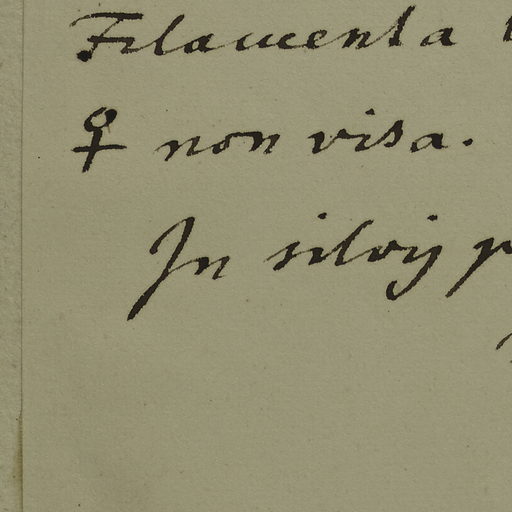 Filamenta
♀ non visa.
In silvij